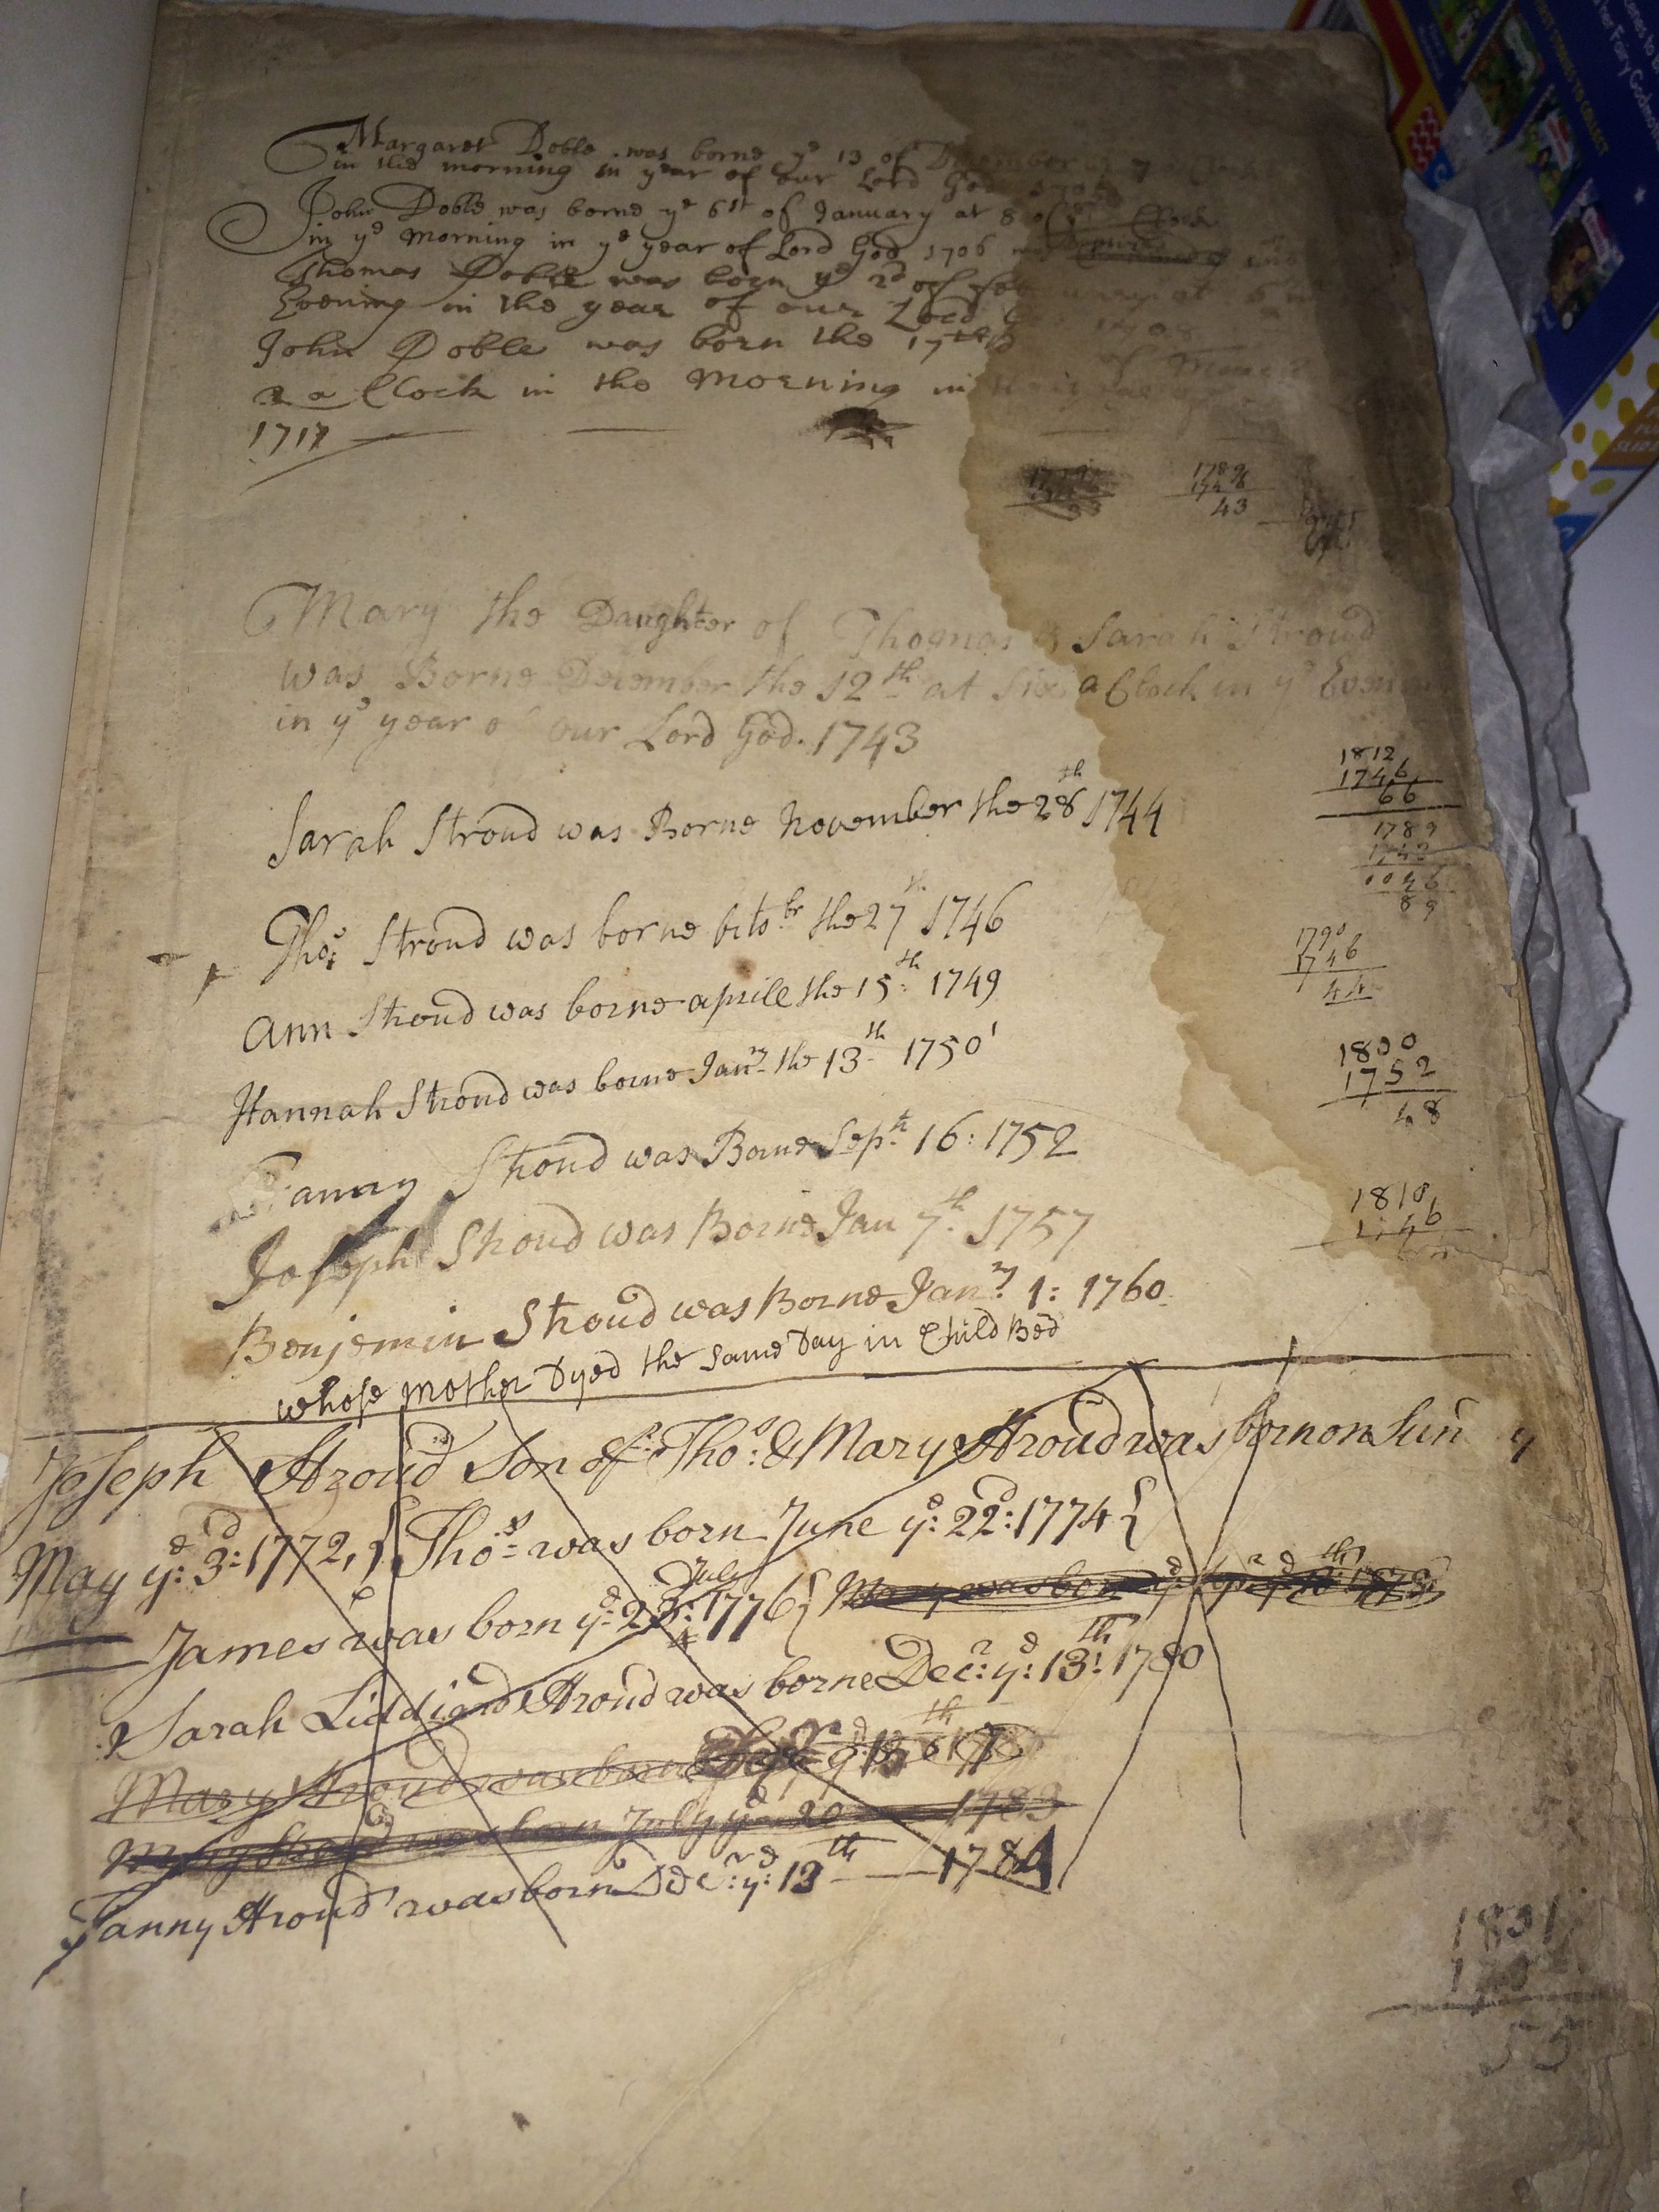 Margaret Doble was borne ye 13 of December
in the morning in year of our Lord God 1705
John Doble was borne ye 6st of January at 8 of ye Clock
in ye morning in ye year of Lord God 1706
Thomas Doble was born ye 2d of February at
Evening in the year of our Lord 1708
John Doble was born the 17th of March
2 a Clock in the Morning in the year
1717
1789
1746
43
Mary the Daughter of Thomas & Sarah Stroud
was Borne December the 12th at six a Clock in ye Evening
in ye year of our Lord God. 1743
1812
1746
66
Sarah Stroud was Borne November the 28th 1744
1789
1743
0046
89
Thos Stroud was borne octobr the 27th 1746
1790
1746
44
Ann Stroud was borne aprill the 15th 1749
Hannah Stroud was borne Janry the 13th 1750
1800
1752
48
Fanny Stroud was Borne Sepr 16: 1752
Joseph Stroud was Borne Jan 7th 1757
1810
1746
Benjemin Stroud was Borne Janry 1: 1760
whose mother Dyed the same Day in Child Bed
Joseph Stroud Son of Thos: & Mary Stroud was born on Sun y
May yd: 3d: 1772, { Thos was born June yd: 22d: 1774 {
July
James was born yd: 23: 1776 { Mary was born
Sarah Liddiard Stroud was borne Decr: yd: 13th: 1780
Mary Stroud was born Sepr yd 13th 17
Mary Stroud was born July yd 20 1783
Fanny Stroud was born Decr: yd: 13th 1784
1831
55